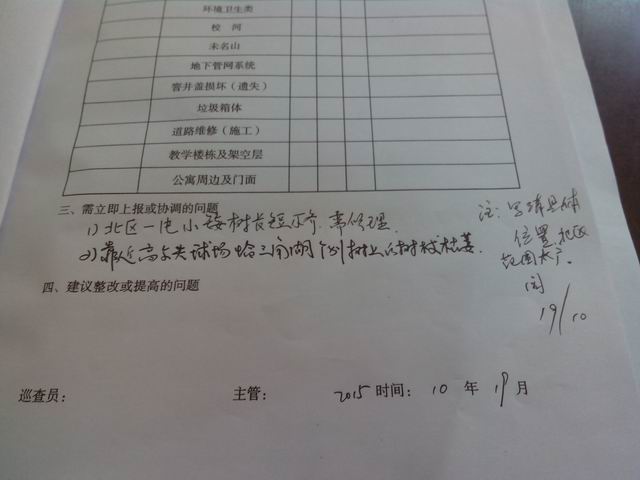 环境卫生类
校 河
未名山
地下管网系统
窨井盖损坏（遗失）
垃圾箱体
道路维修（施工）
教学楼栋及架空层
公寓周边及门面
三、需立即上报或协调的问题
1）北区一 小 树长短不齐，需修理。
2）靠近 球场 树上的树枝枯萎。
注：写清具体
位置，北区
范围太广。
19/10
四、建议整改或提高的问题
巡查员： 主管： 2015 时间： 10 年 19 月